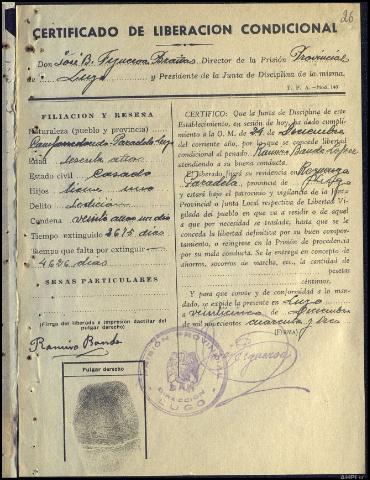 26
CERTIFICADO DE LIBERACION CONDICIONAL
Don José B. Figueroa Director de la Prisión Provincial
de Lugo y Presidente de la Junta de Disciplina de la misma.
T. P. A.—Mod. 140
FILIACION Y RESEÑA
Naturaleza (pueblo y provincia)
Paradela Lugo
Edad sesenta años
Estado civil casado
Hijos tiene uno
Delito
Condena veinte años un día
Tiempo extinguido 2675 días
Tiempo que falta por extinguir
4626 días
SEÑAS PARTICULARES
(Firma del liberado e impresión dactilar del
pulgar derecho)
Ramiro Bande
Pulgar derecho
CERTIFICO: Que la Junta de Disciplina de este
Establecimiento, en sesión de hoy ha dado cumplimiento
a la O. M. de 24 de Diciembre
del corriente año, por lo que se concede libertad
condicional al penado Ramiro Bande López
atendiendo a su buena conducta.
El liberado fijará su residencia en
Paradela, provincia de Lugo
y estará bajo el patrocinio y vigilancia de la Junta
Provincial o Junta Local respectiva de Libertad Vigilada
del pueblo en que va a residir o de aquel
a que por necesidad se traslade, hasta que se le
conceda la libertad definitiva por su buen comportamiento,
o reingrese en la Prisión de procedencia
por su mala conducta. Se le entrega en concepto de
ahorros, socorros de marcha, etc., la cantidad de
pesetas
céntimos.
Y para que conste y de conformidad a lo mandado,
se expide la presente en Lugo
a veinticinco de Diciembre
de mil novecientos cuarenta y tres
(Firma)
José Figueroa
PRISION PROVINCIAL
DIRECCION
LUGO
AHPLu